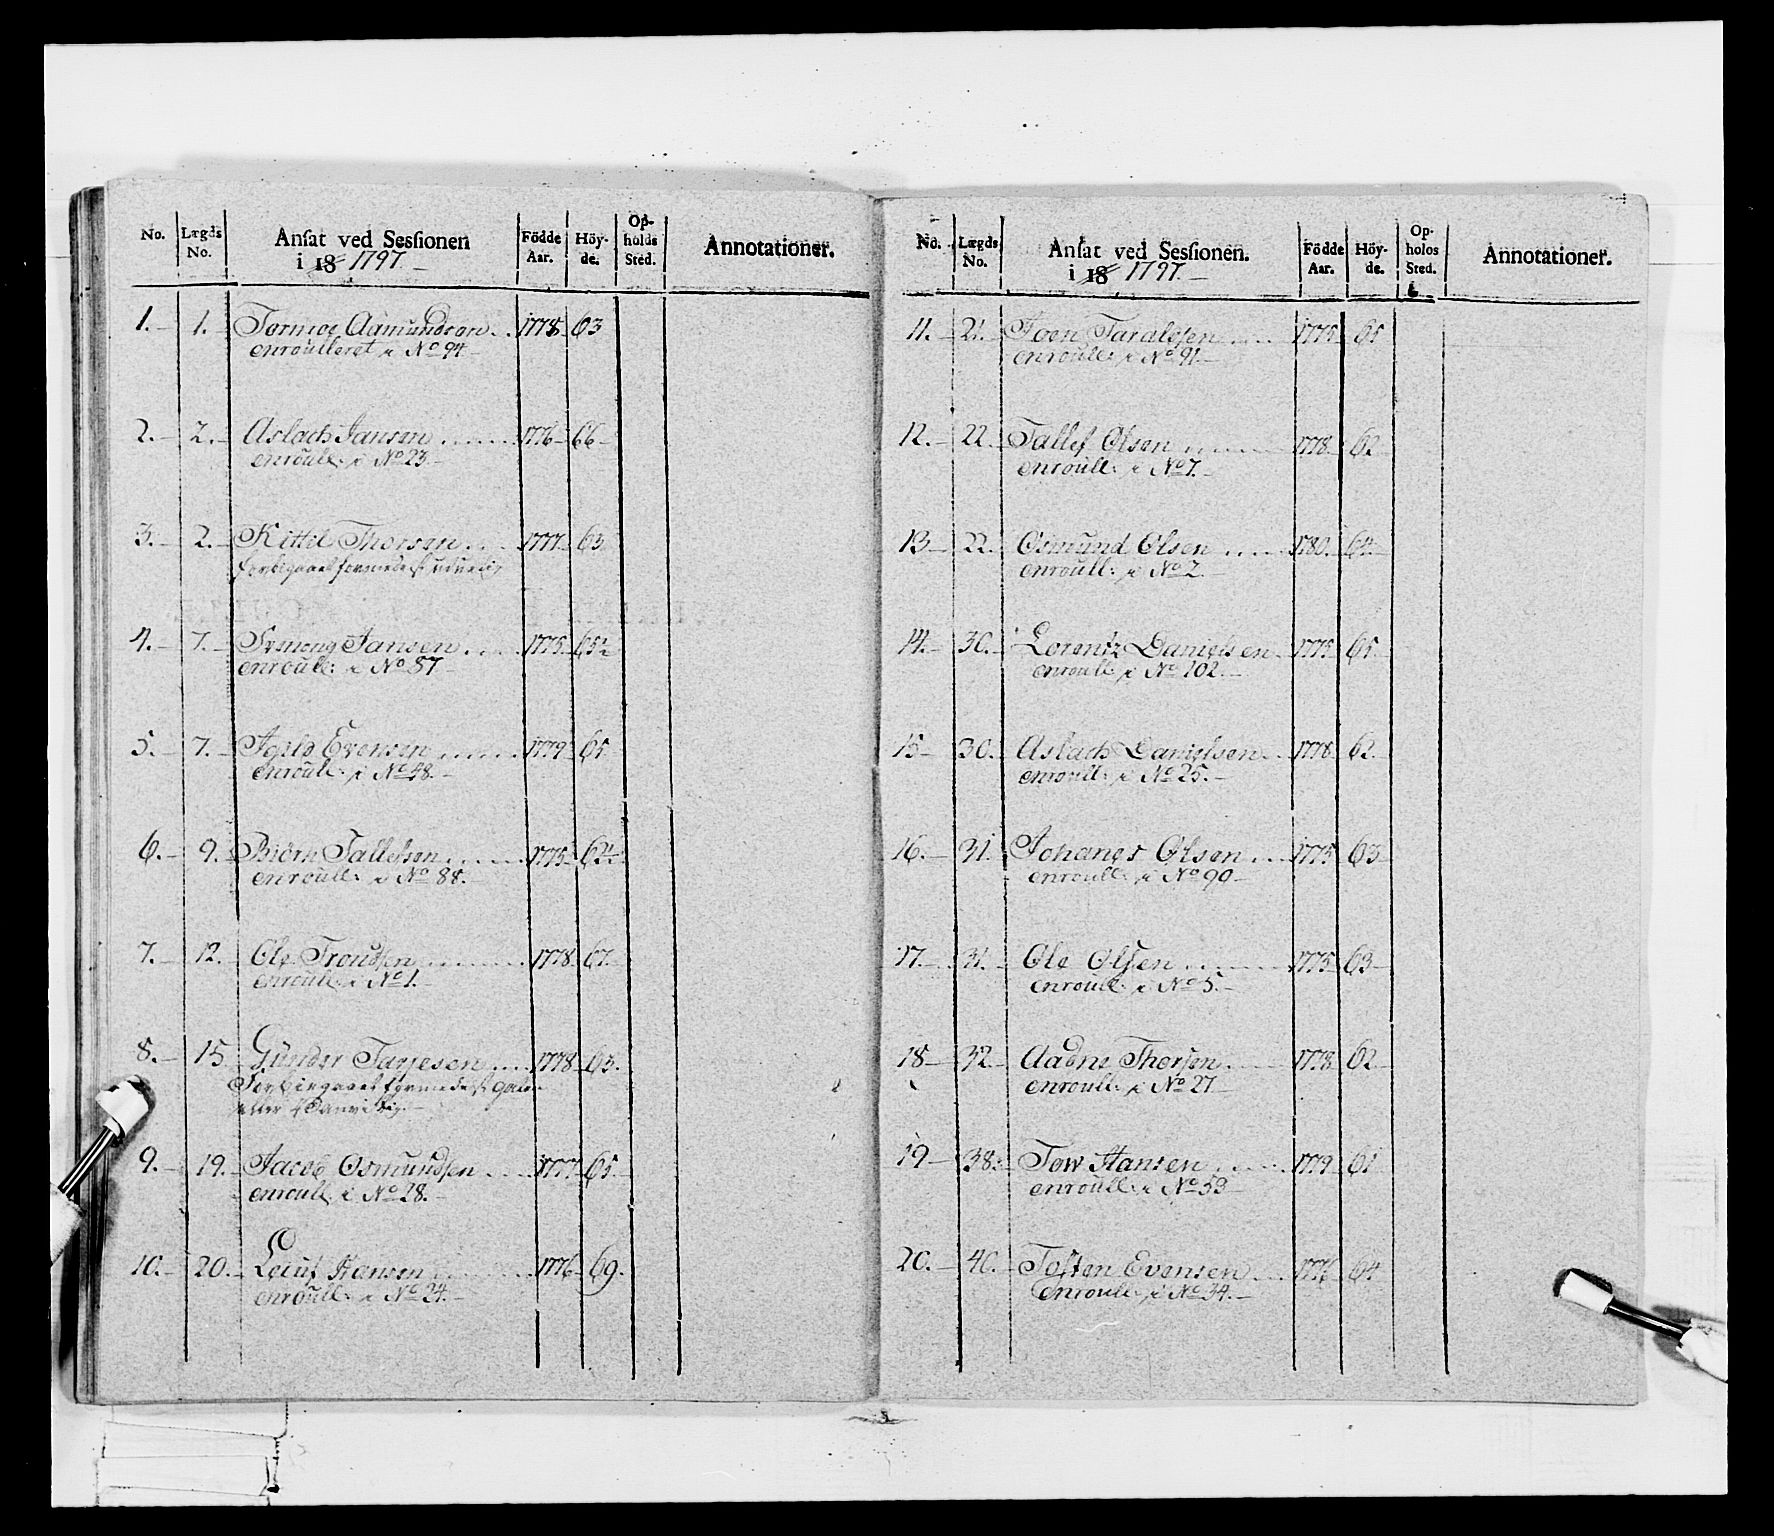 No. Lægds No. Ansat ved Sessionen i 18 1797. Födde Aar. Höyde. Opholds Sted. Annotationer.
1. 1. Tormoe Aamundson 1778 63
enroulleret i No 94
2. 2. Aslach Jansen 1776 66
enroull: i No 23.
3. 2. Kittil Thorsen 1777 63
4. 7. Jansen 1775 65½
enroull: i No 87
5. 7. Evensen 1779 65
enroull: i No 48.
6. 9. Biörn Tallefsen 1775 62½
enroull: i No 88.
7. 12. Ole Trondsen 1778 67.
enroull: i No 1.
8. 15 Gunder Tarjesen 1778 63.
eller
9. 19. Jacob Osmundsen 1777 65
enroull: i No 28.
10. 20. Leiuf Hansen 1776 69.
enroull: i No 24.
No. Lægds No. Ansat ved Sessionen. i 18 1797. Födde Aar. Höyde. Opholds Sted. Annotationer.
11. 21. Joen Taralsen 1775 65
enroull: i No 91.
12. 22. Tallef Olsen 1778 62
enroull: i No 7.
13 22. Osmund Olsen 1780. 64
enroull: i No 2
14. 30. Lorentz Danielsen 1775 65
enroull: i No 102.
15 30. Aslach Danielsen 1778 62.
enroull: i No 25.
16. 31. Johanes Olsen 1775 63
enroull: i No 90
17. 31. Ole Olsen 1775 63
enroull: i No 5.
18 32. Aadne Thorsen 1778 62
enroull: i No 27
19 38. Tow Hansen 1779 61
enroull: i No 53
20. 40. Tosten Evensen 1776 64
Enroull: i No 34.